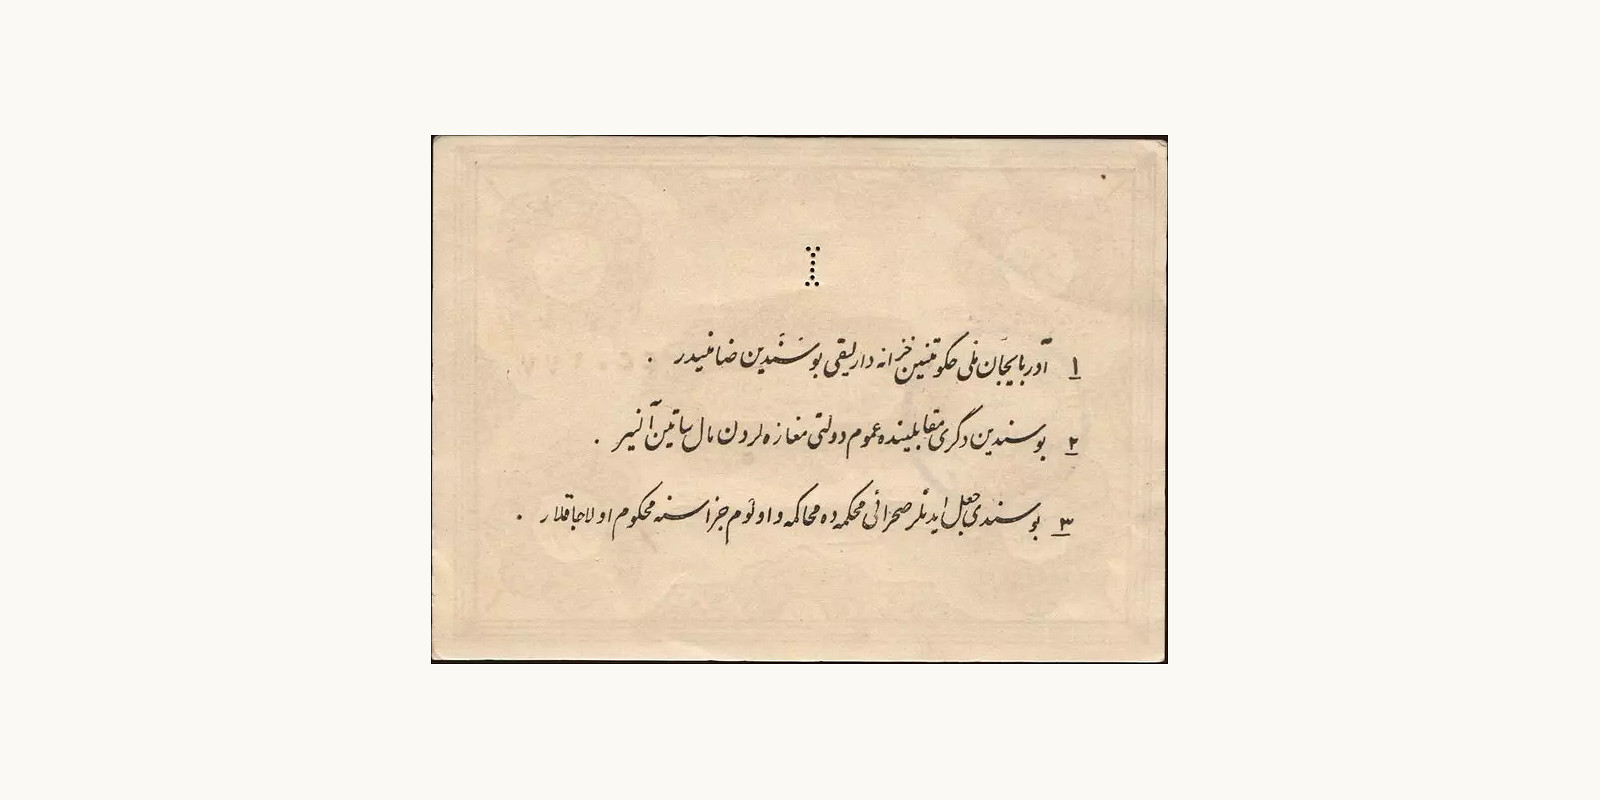 ۱ آذربایجان ملی حکومتنین خزانه داریلقی بو سندین ضامنیدر .
۲ بو سندین دگری مقابلینده عموم دولتی مغازه لردن مال ساتین آلنیر .
۳ بو سندی جعل ایدنلر صحرائی محکمه ده محاکمه و اولوم جزاسنه محکوم اولاجاقلار .